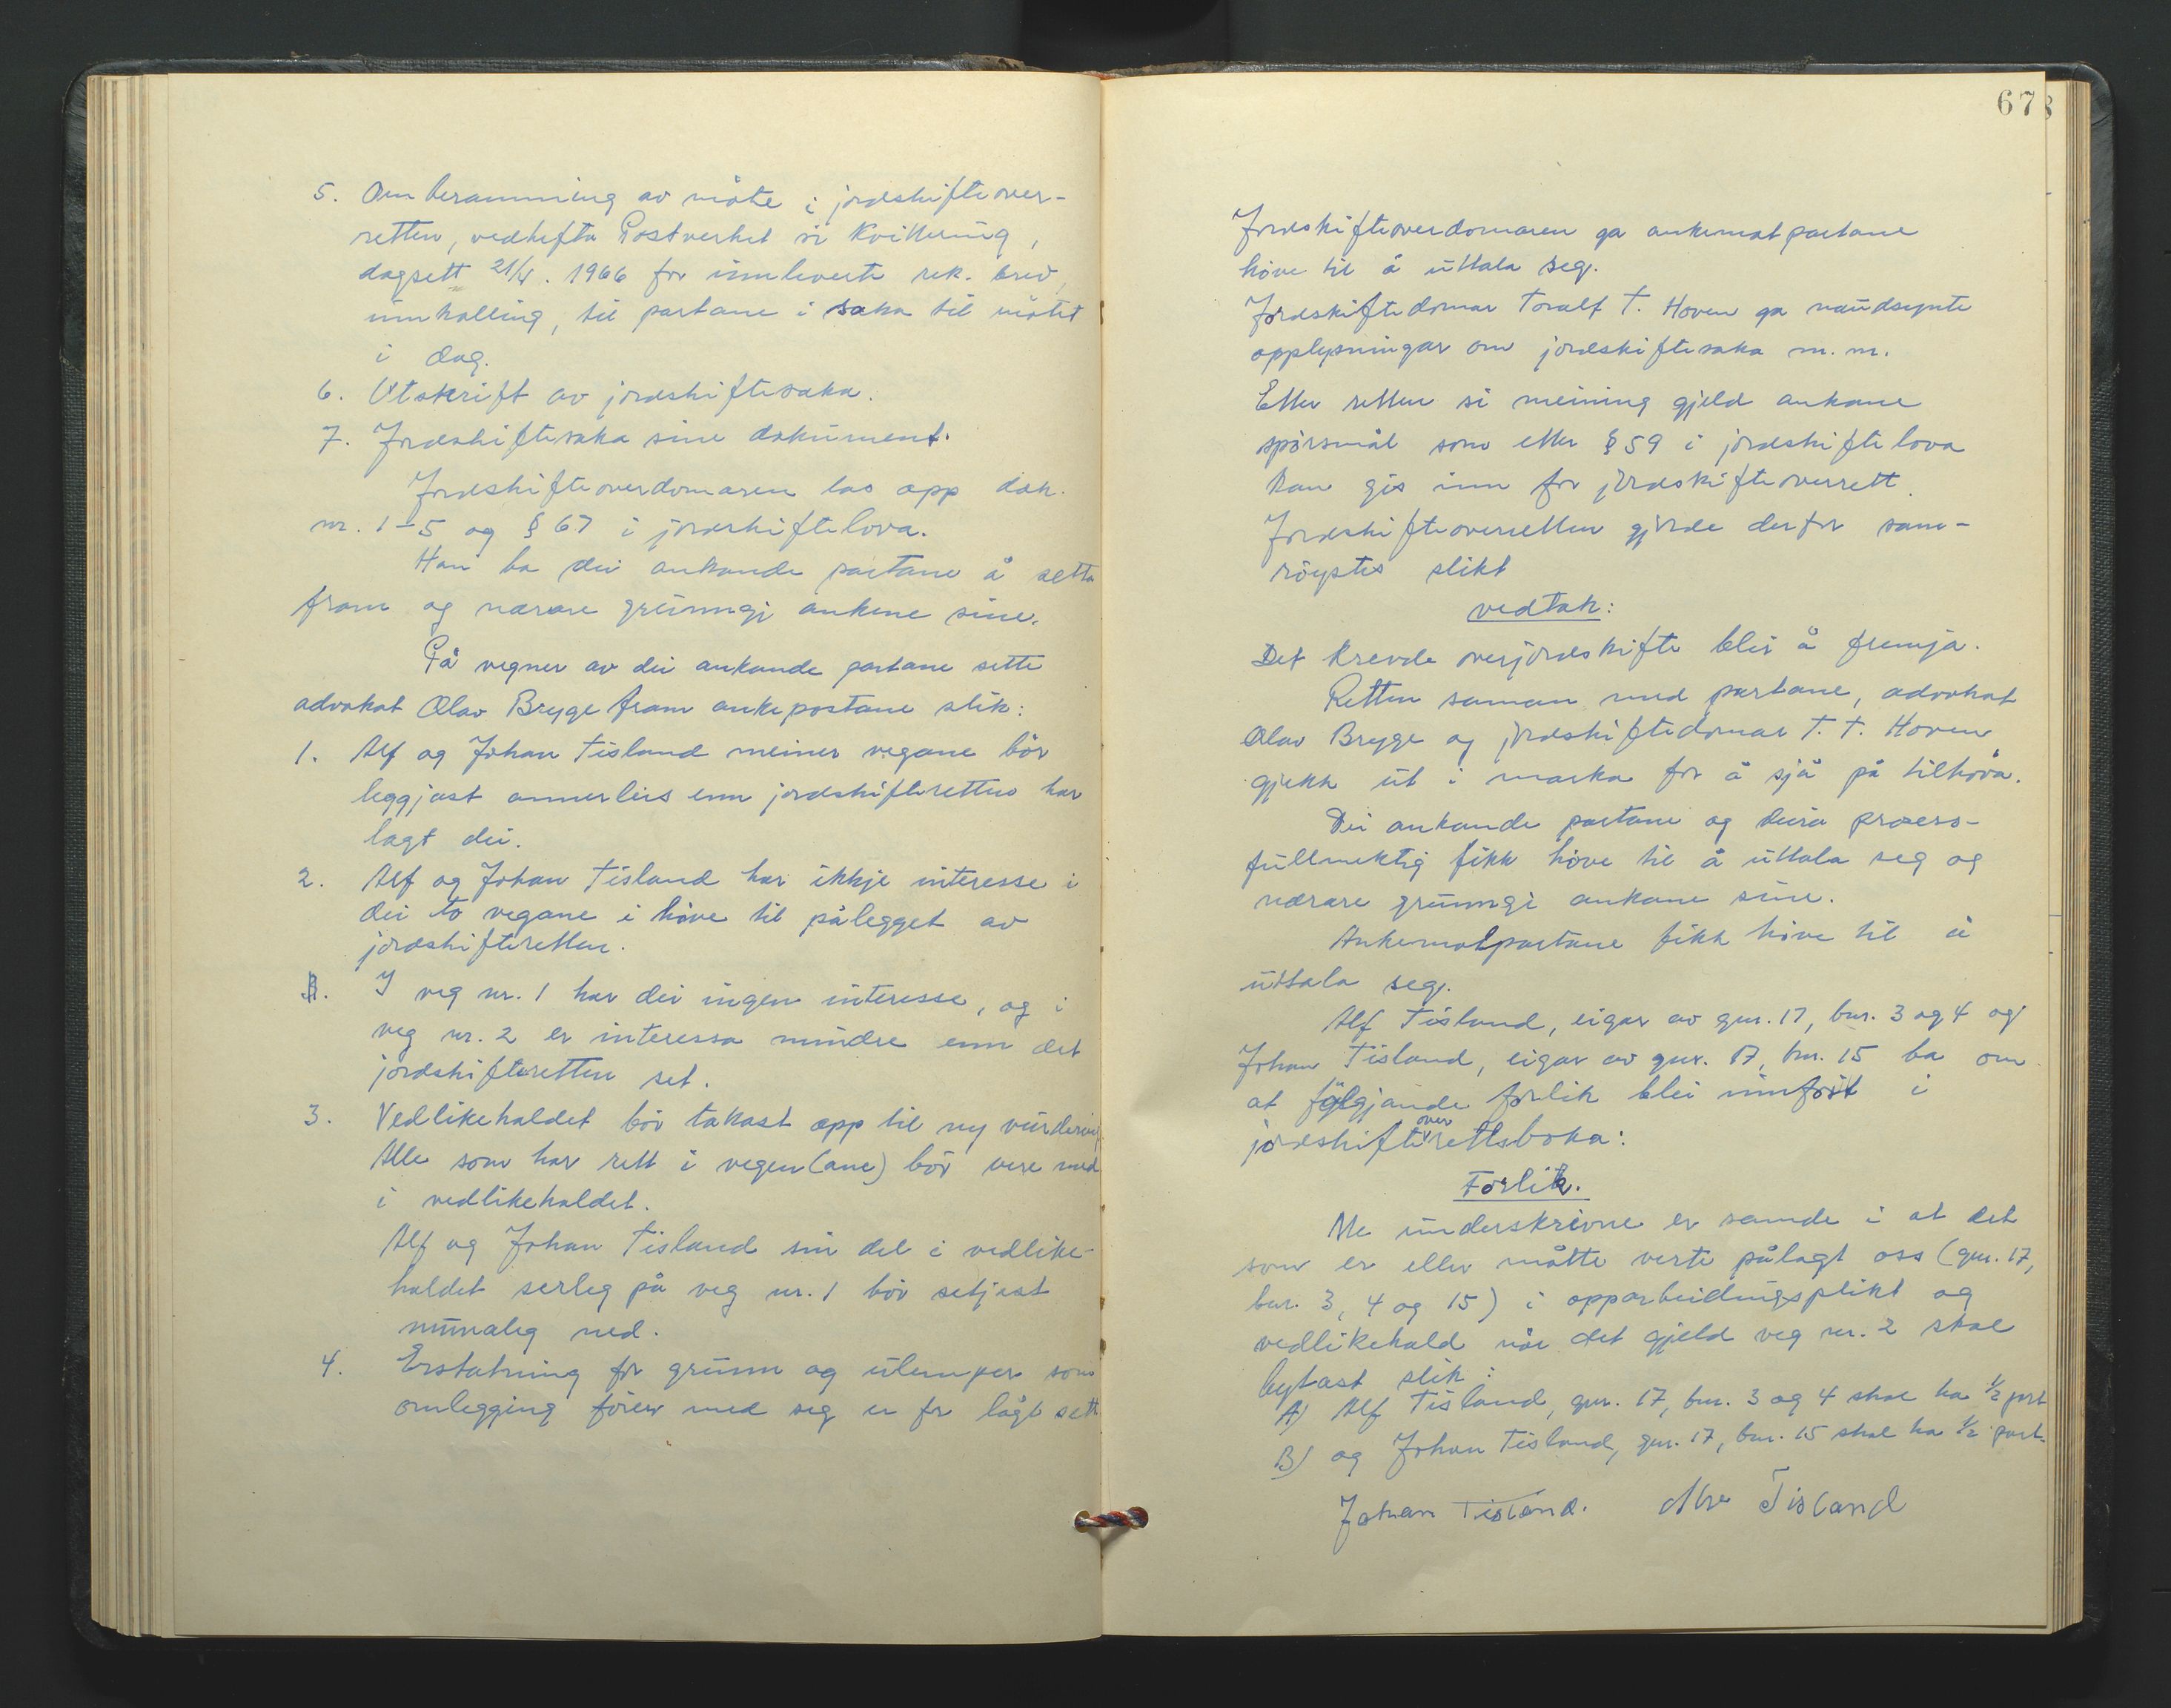 5. Om beramming av møte i jordskifteover-
retten, vedhefta Postverket si Kvittering,
dagsett 21/4. 1966 for innleverte rek. brev,
innkalling, til partane i saka til møtet
i dag.
6. Utskrift av jordskiftesaka.
7. Jordskiftesaka sine dokument.
Jordskifteoverdomaren las opp dok.
nr. 1-5 og § 67 i jordskiftelova.
Han ba dei ankande partane å setta
fram og nærare grunngi ankene sine.
På vegner av dei ankande partane sette
advokat Olav Brygge fram ankepostane slik:
1. Alf og Johan Tisland meiner vegane bör
leggjast annerleis enn jordskifteretten har
lagt dei.
2. Alf og Johan Tisland har ikkje interesse i
dei to vegane i höve til pålegget av
jordskifteretten.
I veg nr. 1 har dei ingen interesse, og i
veg nr. 2 er interessa mindre enn det
jordskifteretten set.
3. Vedlikehaldet bör takast opp til ny vurdering.
Alle som har rett i vegen(ane) bör vere med
i vedlikehaldet.
Alf og Johan Tisland sin del i vedlike-
haldet serleg på veg nr. 1 bör setjast
munaleg ned.
4. Erstatning for grunn og ulemper som
omlegging förer med seg er for lågt sett
67
Jordskifteoverdomaren ga ankemotpartane
höve til å uttala seg.
Jordskiftedomar Toralf T. Hoven ga naudsynte
opplysningar om jordskiftesaka m. m.
Etter retten si meining gjeld ankane
spörsmål som etter § 59 i jordskiftelova
kan gis inn for jordskifteoverrett.
Jordskifteoverretten gjorde derfor sam-
röystes slikt
vedtak:
Det krevde overjordskifte blir å fremja.
Retten saman med partane, advokat
Olav Brygge og jordskiftedomar T. T. Hoven
gjekk ut i marka for å sjå på tilhöva.
Dei ankande partane og deira prosess-
fullmektig fikk höve til å uttala seg og
nærare grunngi ankane sine.
Ankemotpartane fikk höve til å
uttala seg.
Alf Tisland, eigar av gnr. 17, bnr. 3 og 4 og
Johan Tisland, eigar av gnr. 17, bnr. 15 ba om
at fölgjande forlik blei innfört i
jordskifteoverrettsboka:
Forlik.
Me underskrivne er samde i at det
som er eller måtte verte pålagt oss (gnr. 17,
bnr. 3, 4 og 15) i opparbeidingsplikt og
vedlikehald når det gjeld veg nr. 2 skal
bytast slik:
A) Alf Tisland, gnr. 17, bnr. 3 og 4 skal ha 1/2 part
B) og Johan Tisland, gnr. 17, bnr. 15 skal ha 1/2 part.
Johan Tisland. Alf Tisland